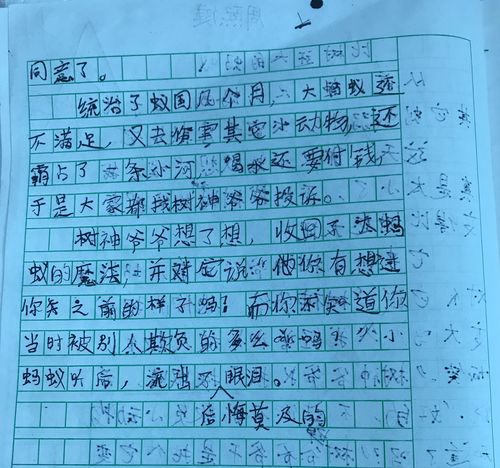 同意了。
统治了蚁国几个月，大蚂蚁还
不满足，又去伤害其它小动物，还
霸占了一条小河，喝水还要付钱，
于是大家都找树神爷爷投诉。
树神爷爷想了想，收回了大蚂
蚁的魔法，并对它说：你有想过
你先之前的样子吗？而你知道你
当时被别人欺负的多么惨吗？小
蚂蚁听后，流出了眼泪。
后悔莫及的